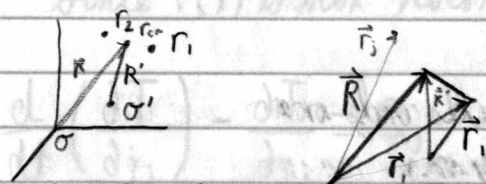 r₂ r_cm r₁
R R'
O'
O
r⃗ⱼ
R⃗ R⃗' r⃗₁
r⃗₁